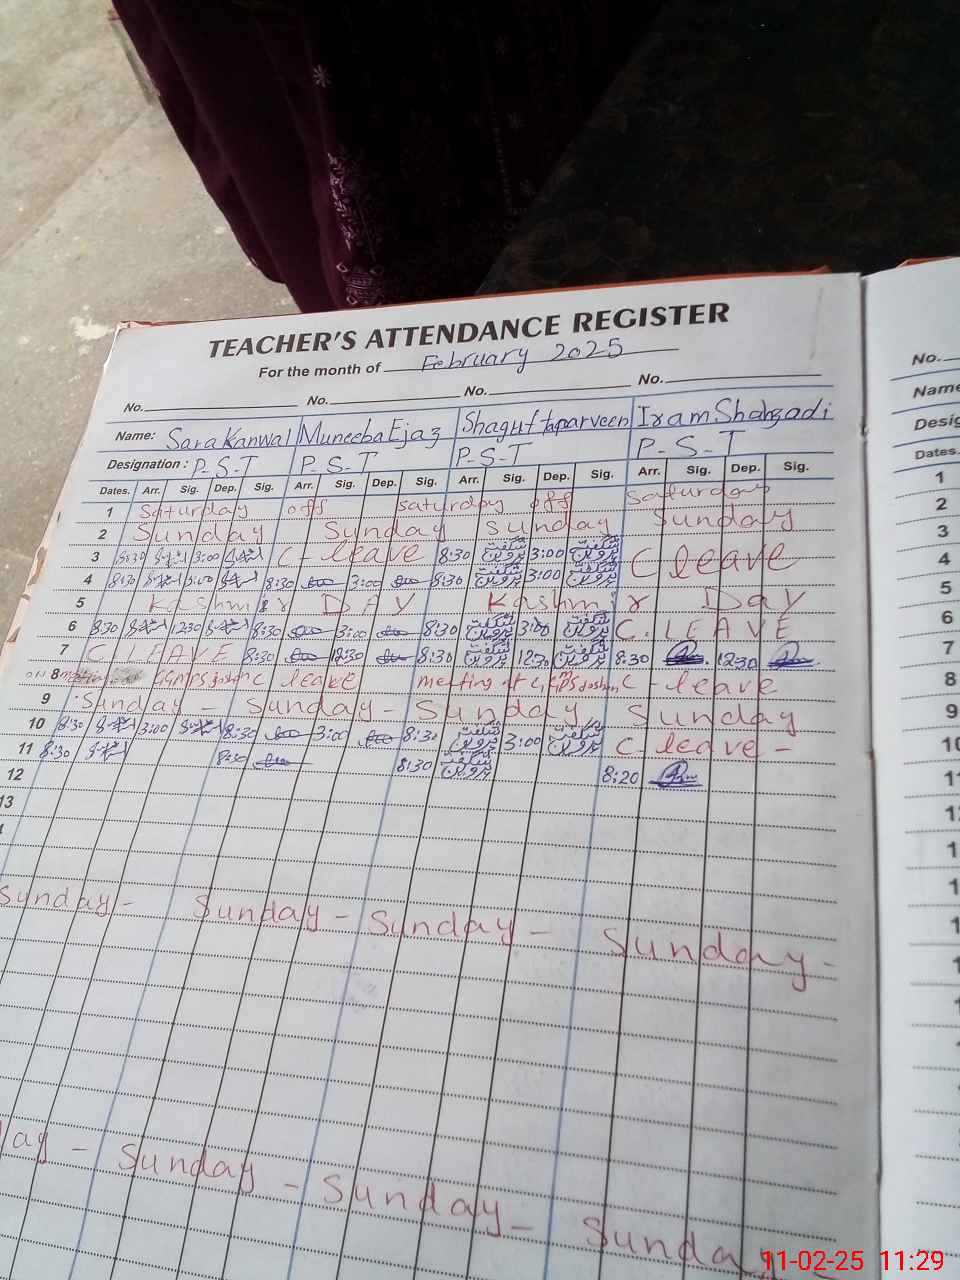 TEACHER'S ATTENDANCE REGISTER
For the month of February 2025
No. No. No. No. No.
Name: Sara Kanwal Muneeba Ejaz Shagufta parveen Iram Shahzadi Name
Designation: P-S-T P-S-T P-S-T P-S-T Desig
Dates. Arr. Sig. Dep. Sig. Arr. Sig. Dep. Sig. Arr. Sig. Dep. Sig. Arr. Sig. Dep. Sig. Dates.
1 Saturday off saturday off Saturday 1
2 Sunday Sunday Sunday Sunday 2
3 8:30 3:00 C-leave 8:30 شگفتہ پروین 3:00 شگفتہ پروین C leave 3
4 8:30 3:00 8:30 3:00 8:30 شگفتہ پروین 3:00 شگفتہ پروین 4
5 Kashmir DAY Kashmir Day 5
6 8:30 12:30 8:30 3:00 8:30 شگفتہ پروین 3:00 شگفتہ پروین C. LEAVE 6
7 C LEAVE 8:30 12:30 8:30 شگفتہ پروین 12:30 شگفتہ پروین 8:30 12:30 7
8 GGMPS joshan C leave meeting at GGMPS joshan C-leave 8
9 Sunday - Sunday - Sunday Sunday 9
10 8:30 3:00 8:30 3:00 8:30 شگفتہ پروین 3:00 شگفتہ پروین C-leave - 10
11 8:30 8:30 8:30 شگفتہ پروین 8:20 11
12
13
Sunday - Sunday - Sunday - Sunday -
ay - Sunday - Sunday - Sunday
11-02-25 11:29